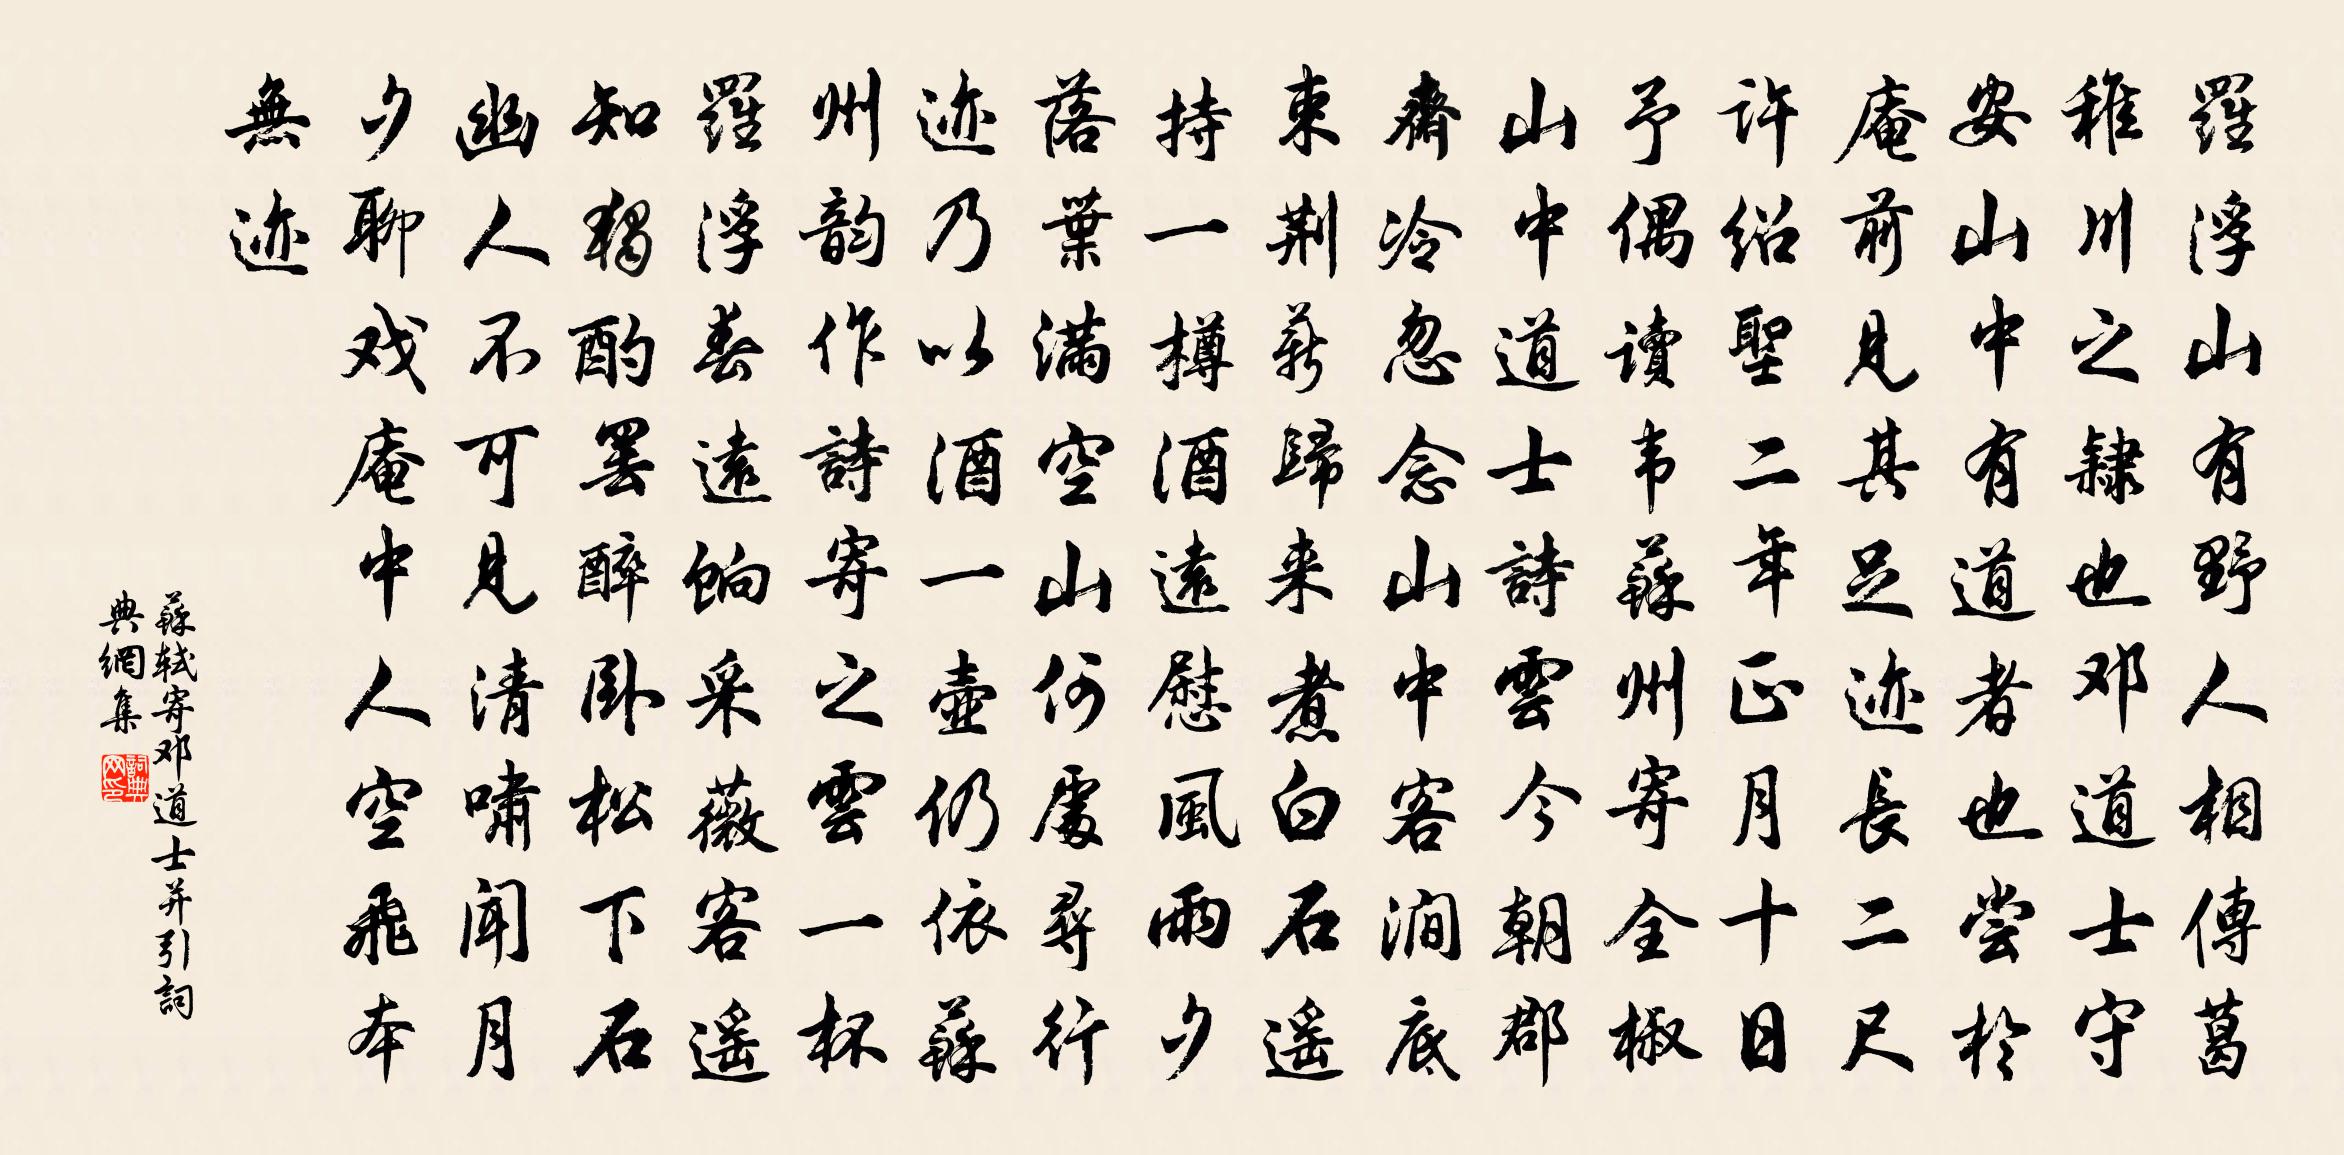 羅浮山有野人相傳葛
稚川之隸也邓道士守
安山中有道者也尝於
庵前見其足迹長二尺
许绍聖二年正月十日
予偶读韦蘇州寄全椒
山中道士詩雲今朝郡
齋冷忽念山中客澗底
束荆薪歸来煮白石遥
持一樽酒遠慰風雨夕
落葉满空山何處尋行
迹乃以酒一壶仍依蘇
州韵作詩寄之雲一杯
羅浮春遠餉采薇客遥
知独酌罢醉卧松下石
幽人不可見清啸闻月
夕聊戏庵中人空飛本
無迹
蘇轼寄邓道士并引詞
典網集
詞典网印